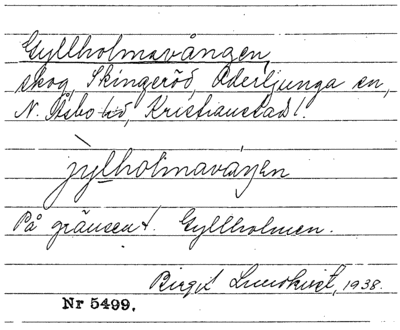 Gyllholmavången,
skog, Skingeröd, Oderljunga sn,
N. Åsbo hd, Kristianstad l.
jylholmavåŋen
På gränsen t. Gyllholmen.
Birgit Lundkvist, 1938.
Nr 5499.